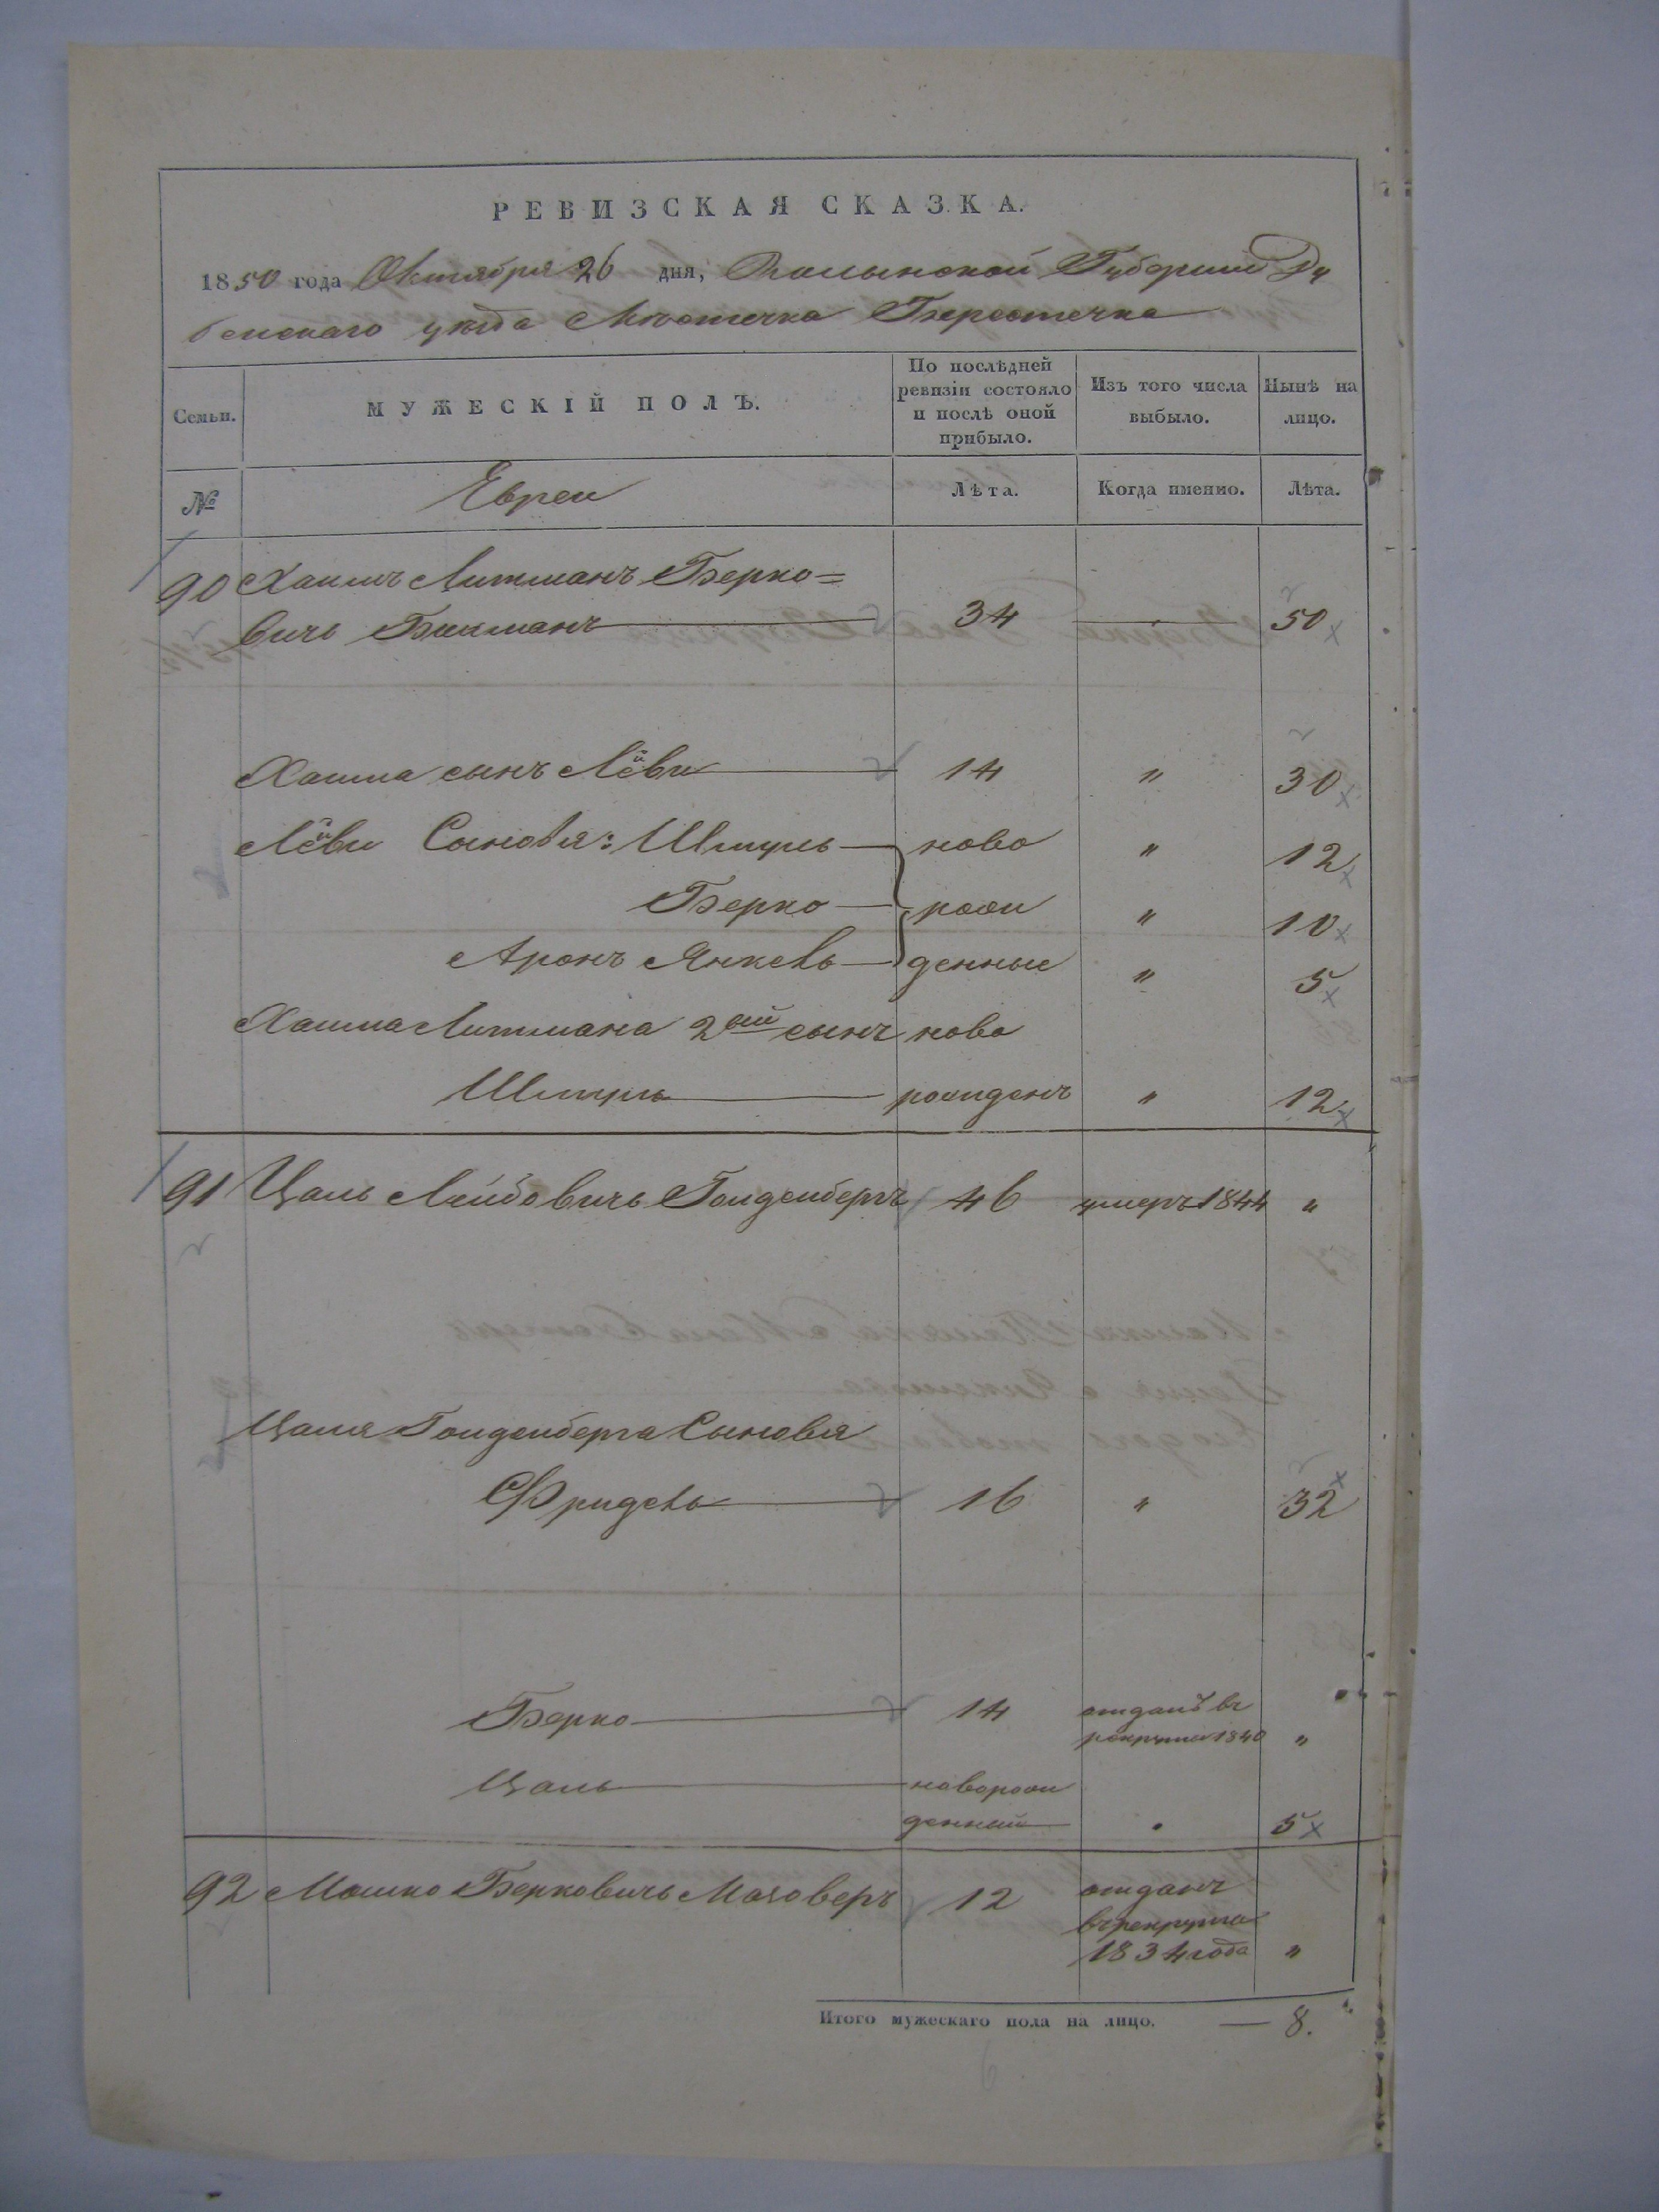 РЕВИЗСКАЯ СКАЗКА.
1850 года Октября 26 дня, Волынской Губернии Ду
бенскаго уѣзда Мѣстечка Берестечка
Семьи. МУЖЕСКІЙ ПОЛЪ. По послѣдней ревизіи состояло и послѣ оной прибыло. Изъ того числа выбыло. Нынѣ на лицо.
№ Евреи Лѣта. Когда именно. Лѣта.
90 Хаимъ Литманъ Берко=
вичь Бикманъ 34 50
Хаима сынъ Лёви 14 " 30
Лёви Сыновья: Шмуль ново " 12
Берко рож " 10
Аронъ Янкель денные " 5
Хаима Литмана 2ой сынъ ново
Шмуль рожденъ " 12
91 Цаль Лейбовичь Голденбергъ 46 умеръ 1844 "
Цаля Голденберга Сыновья
Фридель 16 " 32
Берко 14 отданъ въ
рекруты 1840 "
Цаль новорож
денный " 5
92 Мошко Берковичь 12 отданъ
въ рекруты
1834 года "
Итого мужескаго пола на лицо. — 8.